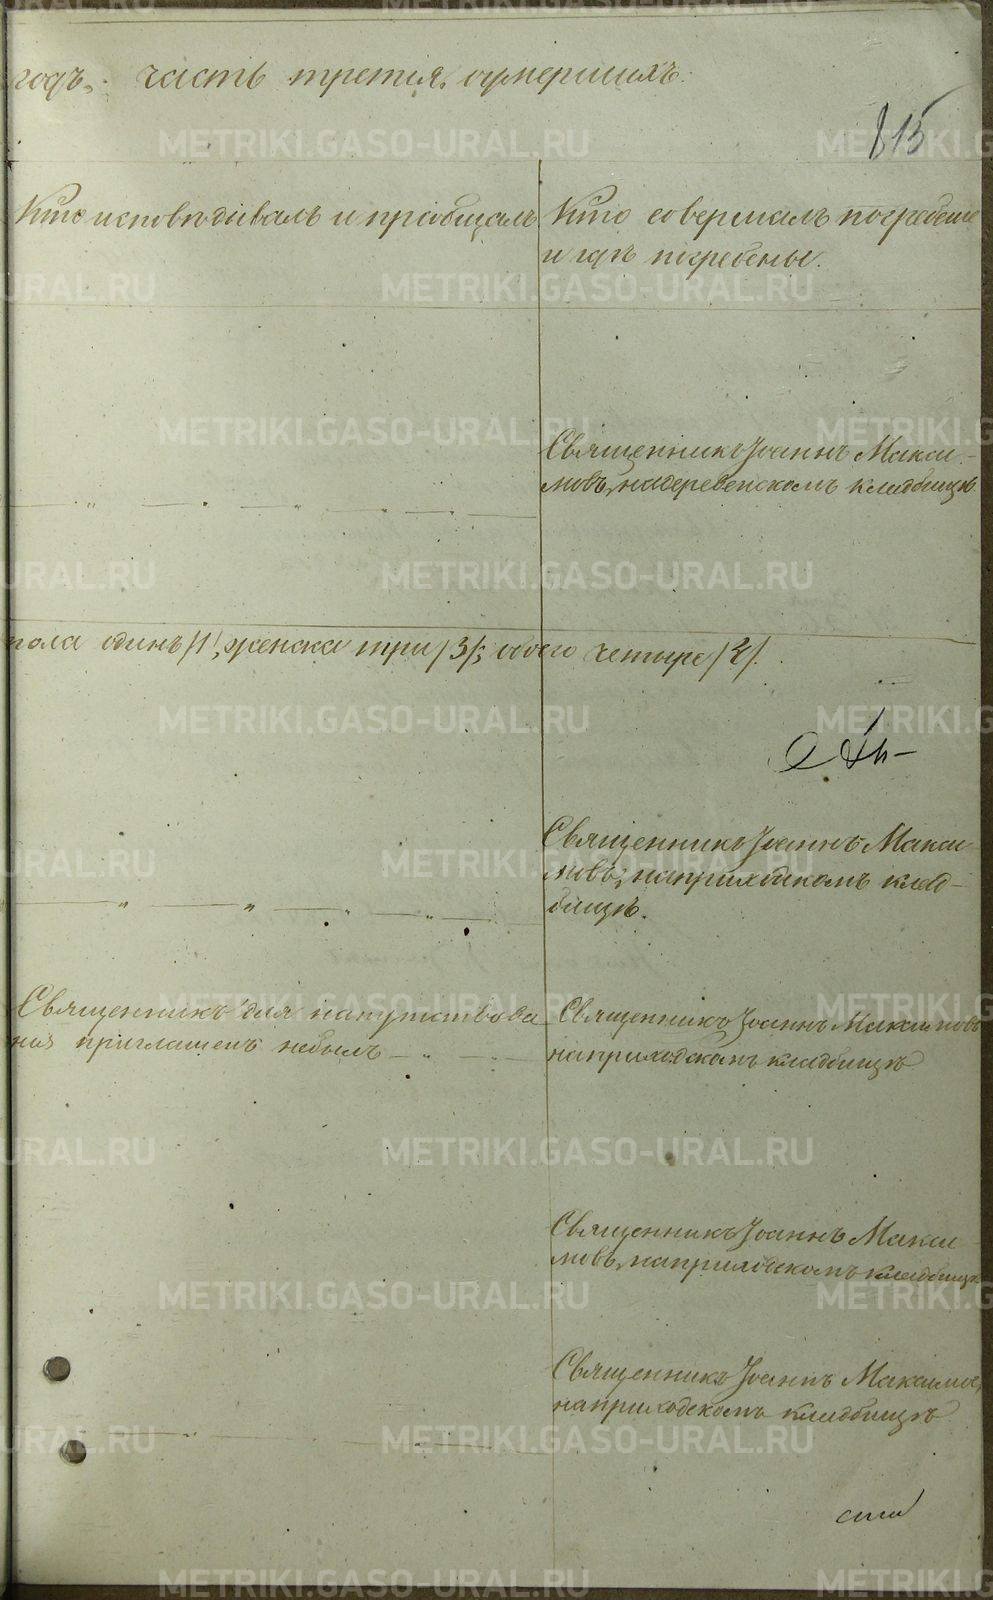 годъ, часть третія, о умершихъ.
815
Кто исповѣдывалъ и пріобщалъ
Кто совершалъ погребеніе
и гдѣ погребены.
Священникъ Іоаннъ Макси-
мовъ, на деревенскомъ кладбищѣ
пола одинъ /1/, женска три /3/; обоего четыре /4/.
Священникъ Іоаннъ Макси-
мовъ, на приходскомъ клад-
бищѣ.
Священникъ для напутствова
нія приглашенъ небылъ
Священникъ Іоаннъ Максимовъ
на приходскомъ кладбищѣ
Священникъ Іоаннъ Макси
мовъ, на приходскомъ кладбищѣ
Священникъ Іоаннъ Максимов,
на приходскомъ кладбищѣ
METRIKI.GASO-URAL.RU